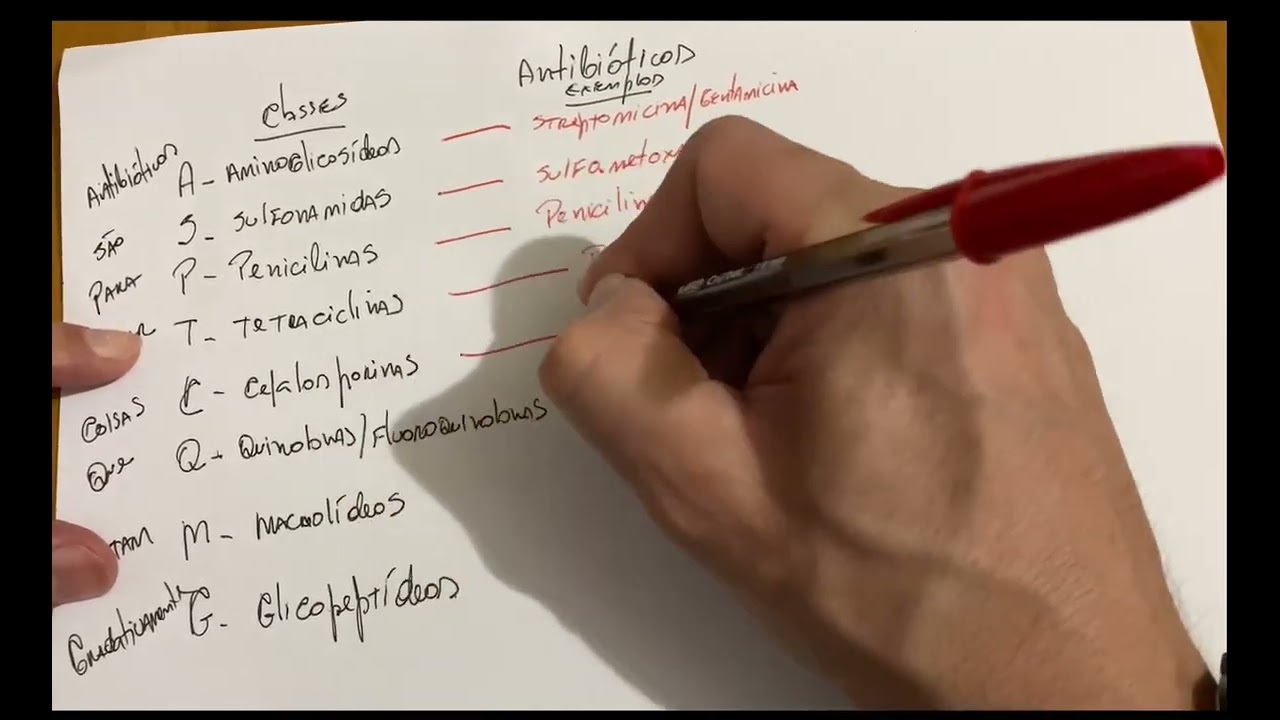 Antibióticos
Exemplos
Classes
Antibióticos A - Aminoglicosídeos — Streptomicina/Gentamicina
são S - Sulfonamidas — Sulfametox
para P - Penicilinas — Penicilin
T - Tetraciclinas —
Coisas C - Cefalosporinas —
Que Q - Quinolonas/Fluoroquinolonas
tam M - Macrolídeos
G - Glicopeptídeos